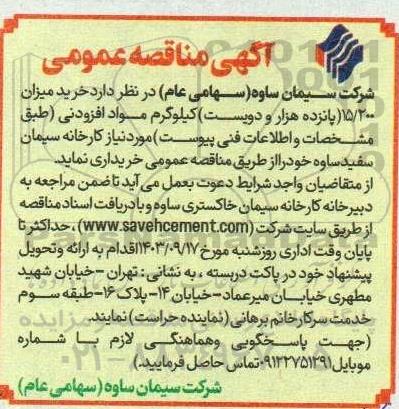 آگهی مناقصه عمومی
شرکت سیمان ساوه(سهامی عام) در نظر دارد خرید میزان
۱۵/۲۰۰(پانزده هزار و دویست)کیلوگرم مواد افزودنی (طبق
مشخصات و اطلاعات فنی پیوست)موردنیاز کارخانه سیمان
سفید ساوه خود را از طریق مناقصه عمومی خریداری نماید.
از متقاضیان واجد شرایط دعوت بعمل می آید تا ضمن مراجعه به
دبیرخانه کارخانه سیمان خاکستری ساوه و یا دریافت اسناد مناقصه
از طریق سایت شرکت (www.savehcement.com)، حداکثر تا
پایان وقت اداری روز شنبه مورخ ۱۴۰۳/۰۹/۱۷اقدام به ارائه وتحویل
پیشنهاد خود در پاکت دربسته ، به نشانی : تهران -خیابان شهید
مطهری خیابان میرعماد-خیابان ۱۴- پلاک ۱۶-طبقه سوم
خدمت سرکار خانم برهانی (نماینده حراست) نمایند.
(جهت پاسخگویی وهماهنگی لازم با شماره
موبایل۰۹۱۲۲۷۵۱۲۹۱تماس حاصل فرمایید.)
شرکت سیمان ساوه (سهامی عام)